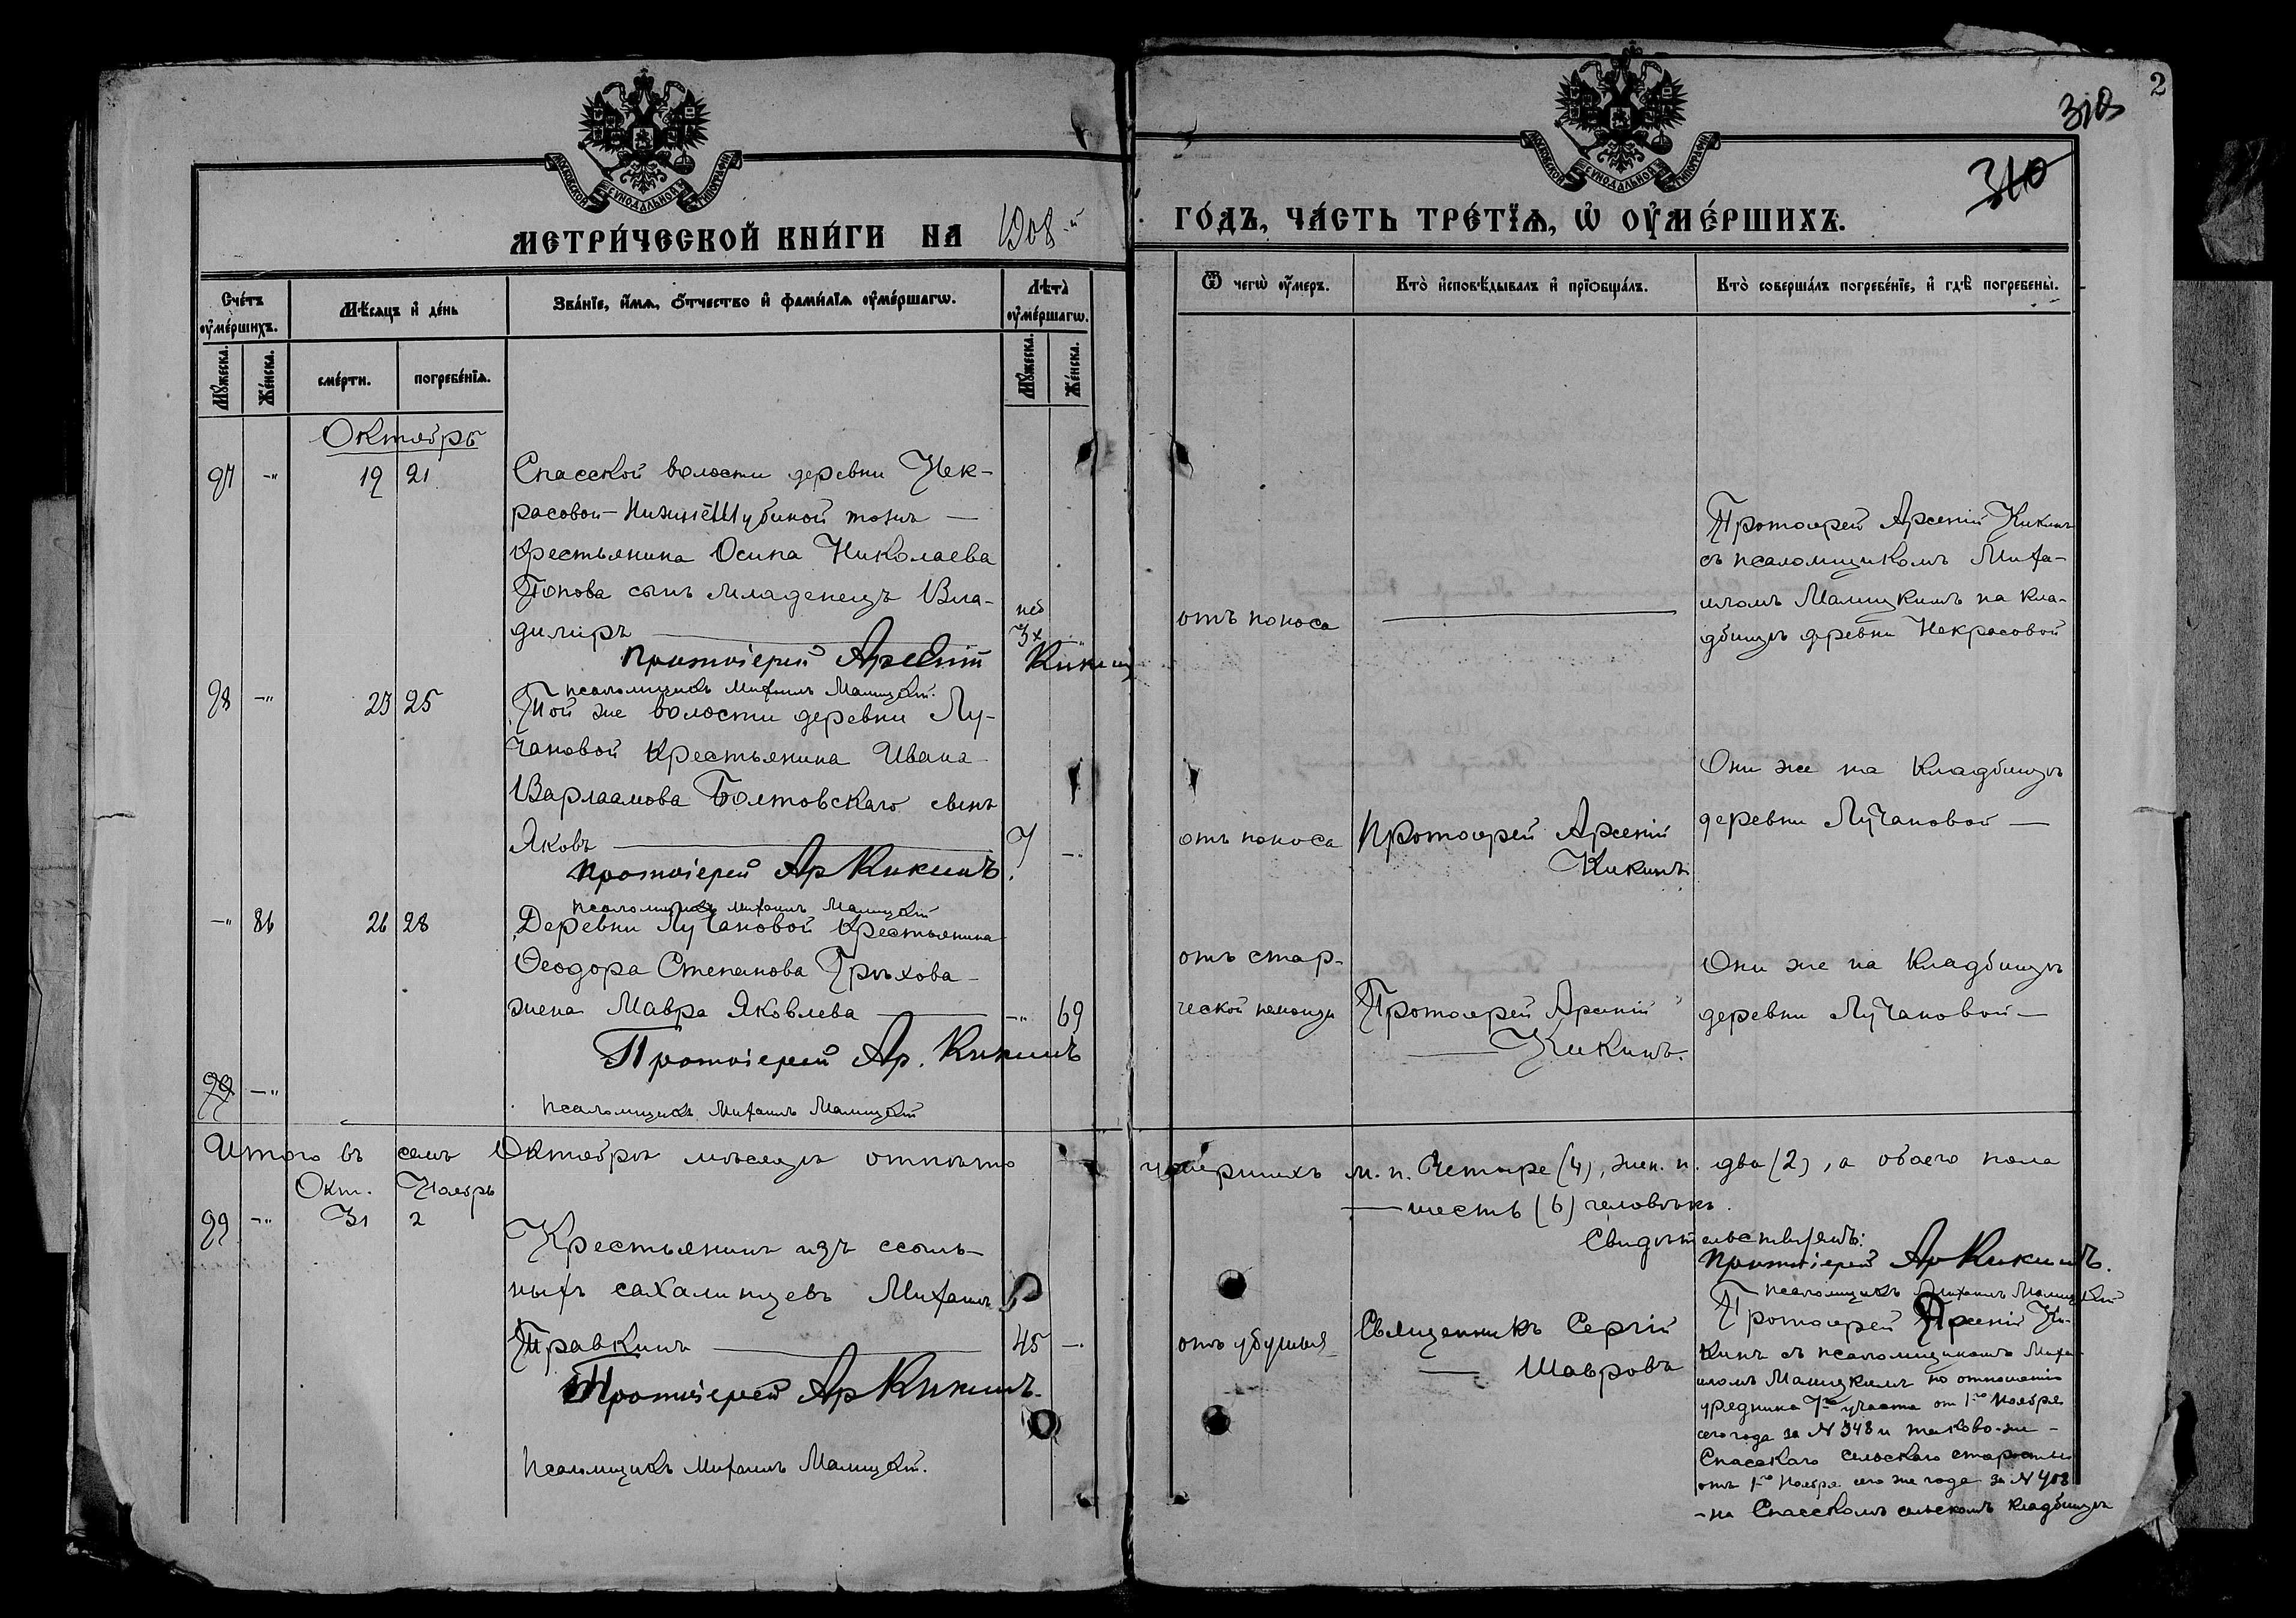 2
318
310
МОСКОВСКОЙ СѴНОДАЛЬНОЙ ТИПОГРАФІИ
МОСКОВСКОЙ СѴНОДАЛЬНОЙ ТИПОГРАФІИ
МЕТРИ́ЧЕСКОЙ КНИ́ГИ НА 1908-й
ГО́ДЪ, ЧА́СТЬ ТРЕ́ТЇѦ, Ѡ҆ ОУ҆МЕ́РШИХЪ.
Сче́тъ оу҆ме́ршихъ.
Мѣ́сѧцъ и҆ де́нь
Зва́нїе, и҆́мѧ, ѻ҆́тчество и҆ фами́лїѧ оу҆ме́ршагѡ.
Лѣта̀ оу҆ме́ршагѡ.
Ѿ чегѡ̀ оу҆́меръ.
Кто̀ и҆сповѣ́дывалъ и҆ прїѻбща́лъ.
Кто̀ соверша́лъ погребе́нїе, и҆ гдѣ̀ погребены̀.
Мꙋ́жеска.
Же́нска.
сме́рти.
погребе́нїѧ.
Мꙋ́жеска.
Же́нска.
Октябрь
97 -"- 19 21
Спасской волости деревни Нек-
расовой-Нижне Шубиной тожъ —
крестьянина Осипа Николаева
Попова сынъ младенецъ Вла-
димиръ —
нед
3х
Протоіерей Арсеній Кикинъ
псаломщикъ Михаилъ Малицкій.
отъ поноса
Протоіерей Арсеній Кикинъ
съ псаломщикомъ Миха-
иломъ Малицкимъ на кла-
дбищѣ деревни Некрасовой
98 -"- 23 25
Той же волости деревни Лу-
чановой крестьянина Ивана
Варлаамова Болтовскаго сынъ
Яковъ — 7 -"-
Протоіерей Ар Кикинъ.
псаломщикъ Михаилъ Малицкій
отъ поноса
Протоіерей Арсеній
Кикинъ
Они же на кладбищѣ
деревни Лучановой —
-"- 86 26 28
Деревни Лучановой крестьянина
Ѳеодора Степанова Грѣхова
жена Мавра Яковлева — -"- 69
Протоіерей Ар. Кикинъ
99 -"-
псаломщикъ Михаилъ Малицкій
отъ стар-
ческой немощи
Протоіерей Арсеній
— Кикинъ.
Они же на кладбищѣ
деревни Лучановой —
Итого въ семъ Октябрѣ мѣсяцѣ отпѣто умершихъ м. п. Четыре (4), жен. п. два (2), а обоего пола
— шесть (6) человѣкъ.
Свидѣтельствуемъ:
Протоіерей Ар Кикинъ.
псаломщикъ Михаилъ Малицкій
Окт. Ноябрь
99 -"- 31 2
Крестьянинъ изъ ссыль-
ныхъ сахалинцевъ Михаилъ
Травкинъ — 45 -"-
Протоіерей Ар Кикинъ.
псаломщикъ Михаилъ Малицкій.
отъ удушья
Священникъ Сергій
— Шавровъ
Протоіерей Арсеній Ки-
кинъ съ псаломщикомъ Миха-
иломъ Малицкимъ по отношенію
урядника 7го участка от 1-го Ноября
сего года за № 348 и таково-же
Спасскаго сельскаго старосты
отъ 1-го Ноября сего же года за № 408
- на Спасскомъ сельскомъ кладбищѣ